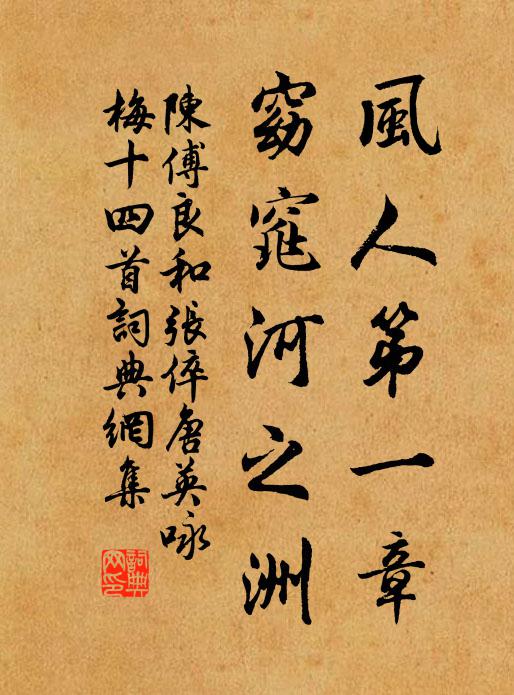 風人第一章
窈窕河之洲
陳傅良和張倅唐英咏
梅十四首詞典網集
詞典网印